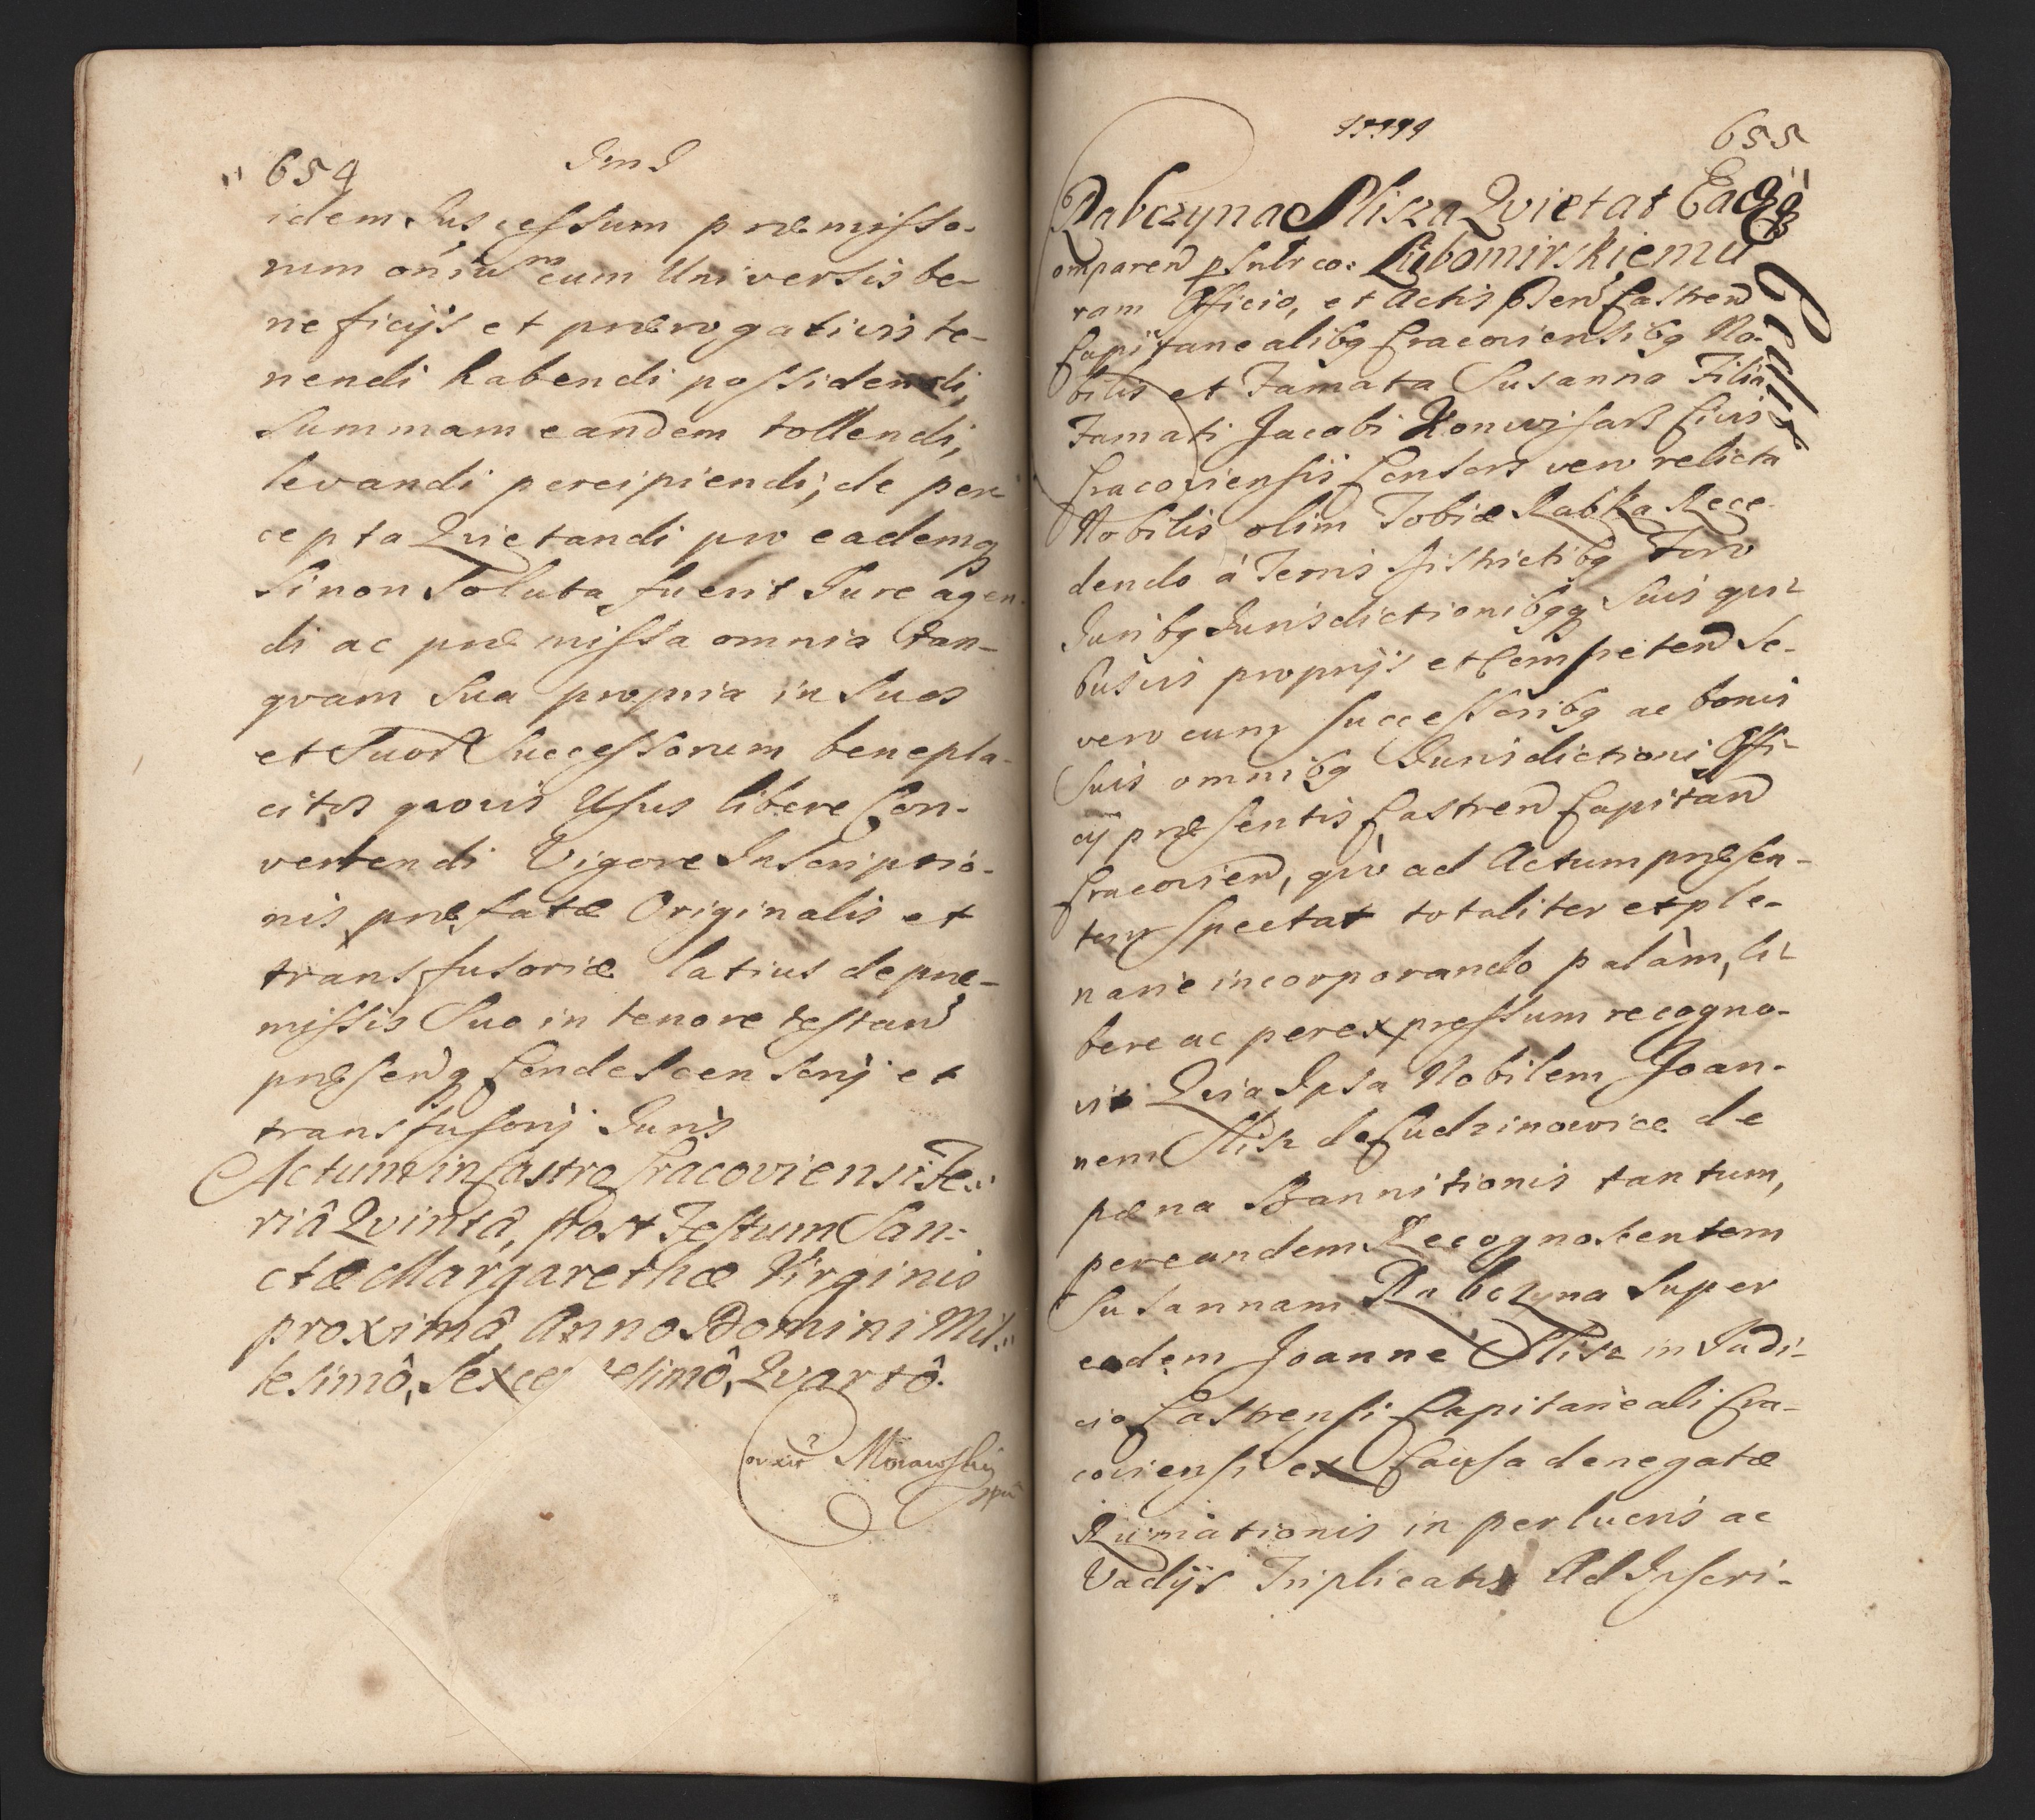 654
idem Successum præmisso-
rum oniu᷉m cum Universis be-
neficijs et prærogativis te-
nendi habendi possidendi,
Summam eandem tollendi,
levandi percipiendi, de per-
cepta Qvietandi pro eademq
Si non Soluta fuerit Jure agen-
di ac præmissa omnia tan-
qvam Sua propria in Suos
et Suor Successorum benepla-
citos qvovis Usus libere Con-
vertendi Vigore Inscriptio-
nis præfatæ Originalis et
transfusoriæ latius de præ-
missis Suo in tenore testan
præsenq Condescensorij et
transfusorij Juris
Actum in Castro Cracoviensi Fe-
riâ Qvintâ, post Festum San-
ctæ Margarethæ Virginis
proximâ Anno Domini Mil-
lesimô, Sexcentesimô, Qvartô.
Morawskij
655
Rabczyna Slisza Qvietat
omparen Lubomirskiemu
ram Officio, et Actis Castren
Capitanealibq Cracoviensibq No-
bilis et Famata Susanna Filia
Famati Jacobi Konwisars Civis
Cracoviensis Consors vero relicta
Nobilis olim Tobiæ Rabka Rece-
dendo á Terris Districtibq Foro
Juribq Jurisdictionibqq Suis qvi-
busvis proprijs et Competen Se-
vero cum Successoribq ac bonis
Suis omnibq Jurisdictioni Offi-
cij præsentis Castren Capitan
Cracovien, qvo ad Actum præsen-
tem Spectat totaliter et ple-
narie incorporando palàm, li-
bere ac per expressum recogno-
vit Qvia Ipsa Nobilem Joan-
nem Slisz de Cudzinowice de
pæna Bannitionis tantum,
per eandem Recognoscentem
Susannam Rabczyna Super
eodem Joanne Slisz in Judi-
cio Castrensi Capitaneali Cra-
coviensi ex Causa denegatæ
Rumationis in perlucris ac
Vadijs Triplicatis Ad Inscri-